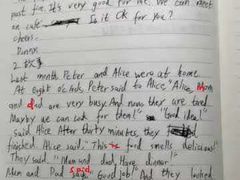 post for. It's very good for me. We can meet
on cafe. Is it OK for you?
cheers.
2.故事
Last month Peter and Alice were at home.
At eight o'clock Peter said to Alice "Alice, Mom
and dad are very busy. And now they are tired.
Mayby we can Look for them!" "Good idea!"
Said Alice. After thirty minutes, they
finished. Alice said: "This food smells delicious!"
They said: "Mom and dad, Have dinner!"
Mom and Dad said "Good job!" And they